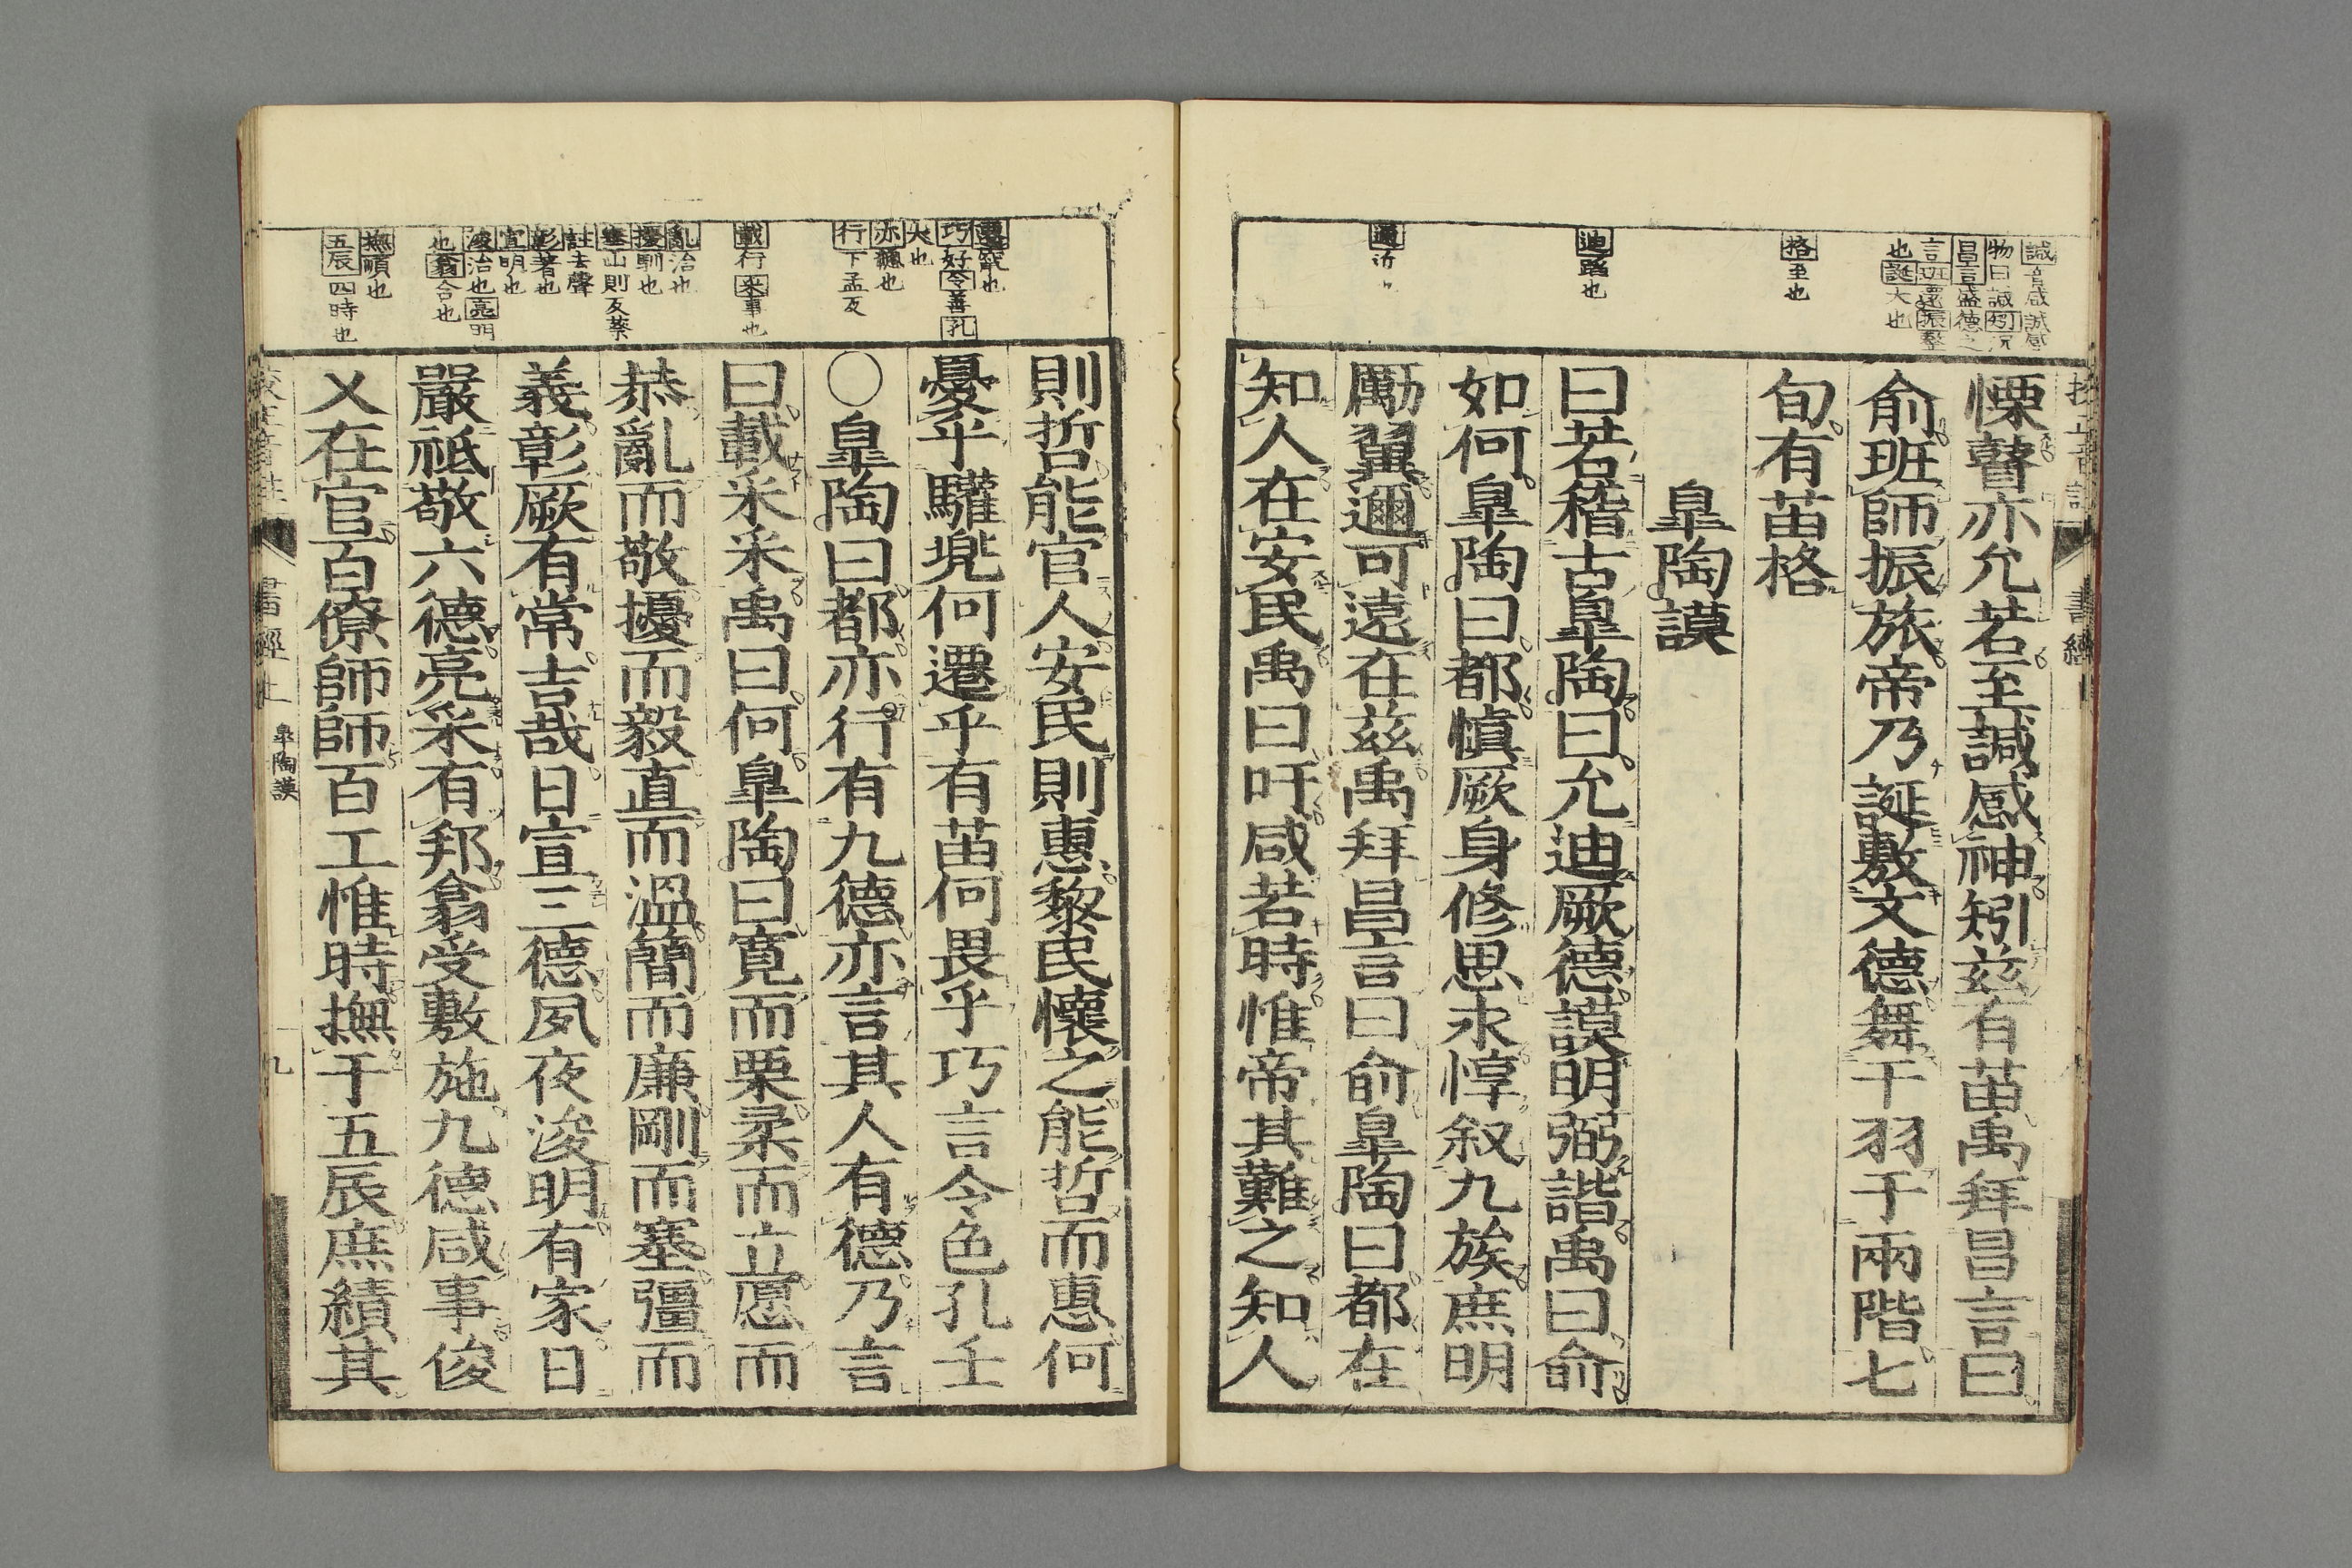 誠音咸誠感
物曰誠矧況
昌言盛德之
言班還振整
也誕大也
格至也
迪蹈也
邇近
慄瞽亦允若至誠感神矧茲有苗禹拜昌言曰
俞班師振旅帝乃誕敷文德舞干羽于兩階七
旬有苗格
皐陶謨
曰若稽古皐陶曰允迪厥德謨明弼諧禹曰俞
如何皐陶曰都愼厥身修思永惇叙九族庶明
勵翼邇可遠在茲禹拜昌言曰俞皐陶曰都在
知人在安民禹曰吁咸若時惟帝其難之知人
書經
遷竄也
巧好令善孔
大也
亦緫也
行下孟反
載行采事也
亂治也
擾馴也
塞山則反蔡
註去聲
彰著也
宣明也
浚治也亮明
也翕合也
撫順也
五辰四時也
則哲能官人安民則惠黎民懷之能哲而惠何
憂乎驩兠何遷乎有苗何畏乎巧言令色孔壬
○皐陶曰都亦行有九德亦言其人有德乃言
曰載采采禹曰何皐陶曰寛而栗柔而立愿而
恭亂而敬擾而毅直而溫簡而廉剛而塞彊而
義彰厥有常吉哉日宣三德夙夜浚明有家日
嚴祗敬六德亮采有邦翕受敷施九德咸事俊
乂在官百僚師師百工惟時撫于五辰庶績其
書經上 皐陶謨 九